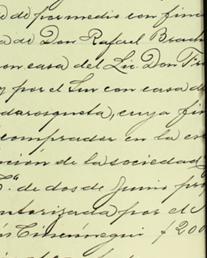 o de por medio con finc
a de Don Rafael Brach
on casa del Lic. Don Fr
y por el Sur con casa d
darosqueta, cuya fin
comprador en la es
ción de la sociedad
C.ª de dos de Junio pr
autorizada por el
200